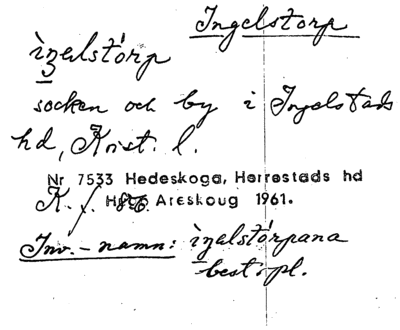 Ingelstorp
ìŋəlstórp
socken och by i Ingelstads
hd, Krist. l.
Nr 7533 Hedeskoga, Herrestads hd
K. Areskoug 1961.
Inv.-namn: ìŋəlstórpana
best. pl.